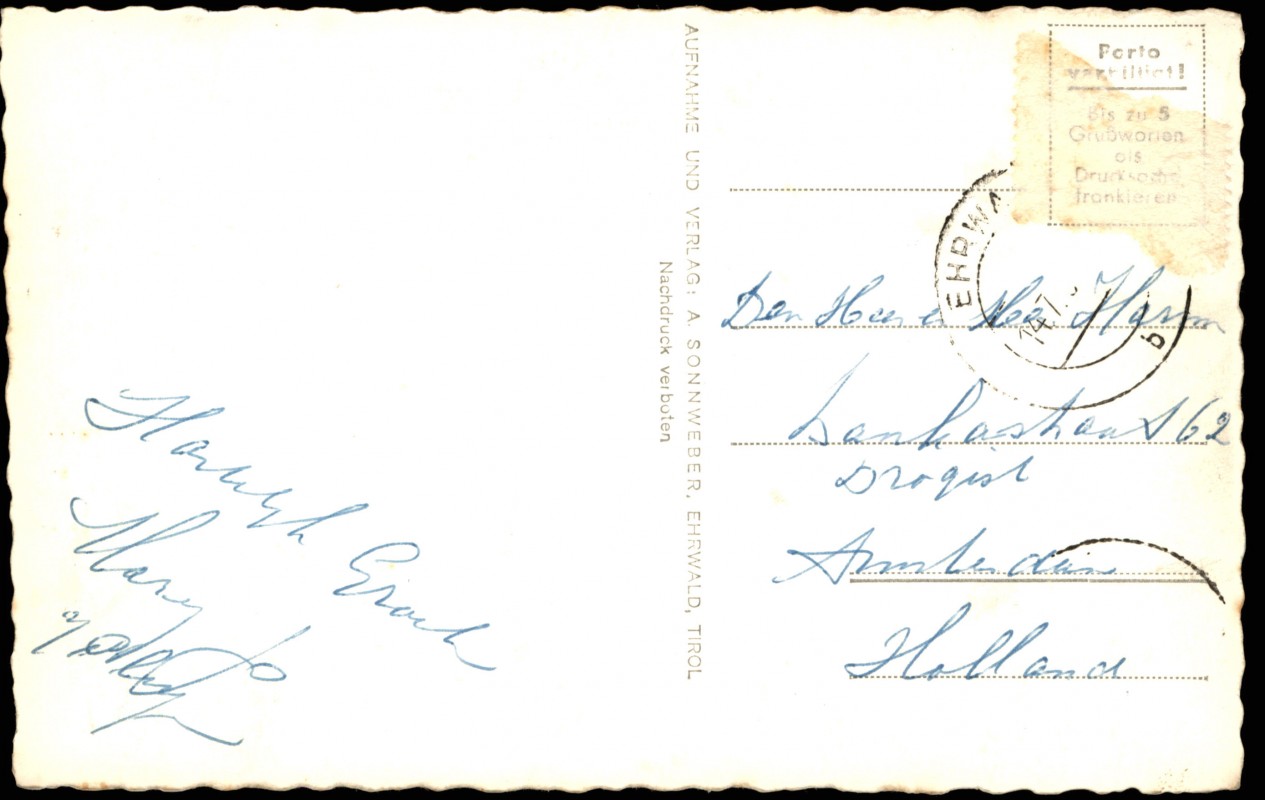 AUFNAHME UND VERLAG: A. SONNWEBER, EHRWALD, TIROL
Nachdruck verboten
Porto
verbilligt!
Bis zu 5
Grußworten
als
Drucksache
frankieren
EHRWA
14.7.
b
Den Heer Harm
62
Drogist
Amsterdam
Holland
Mary